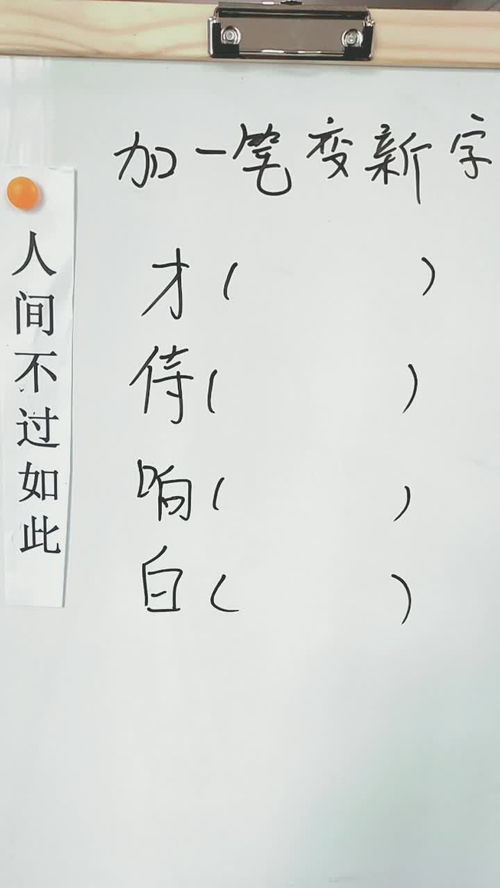 加一笔变新字
才( )
侍( )
响( )
白( )
人间不过如此